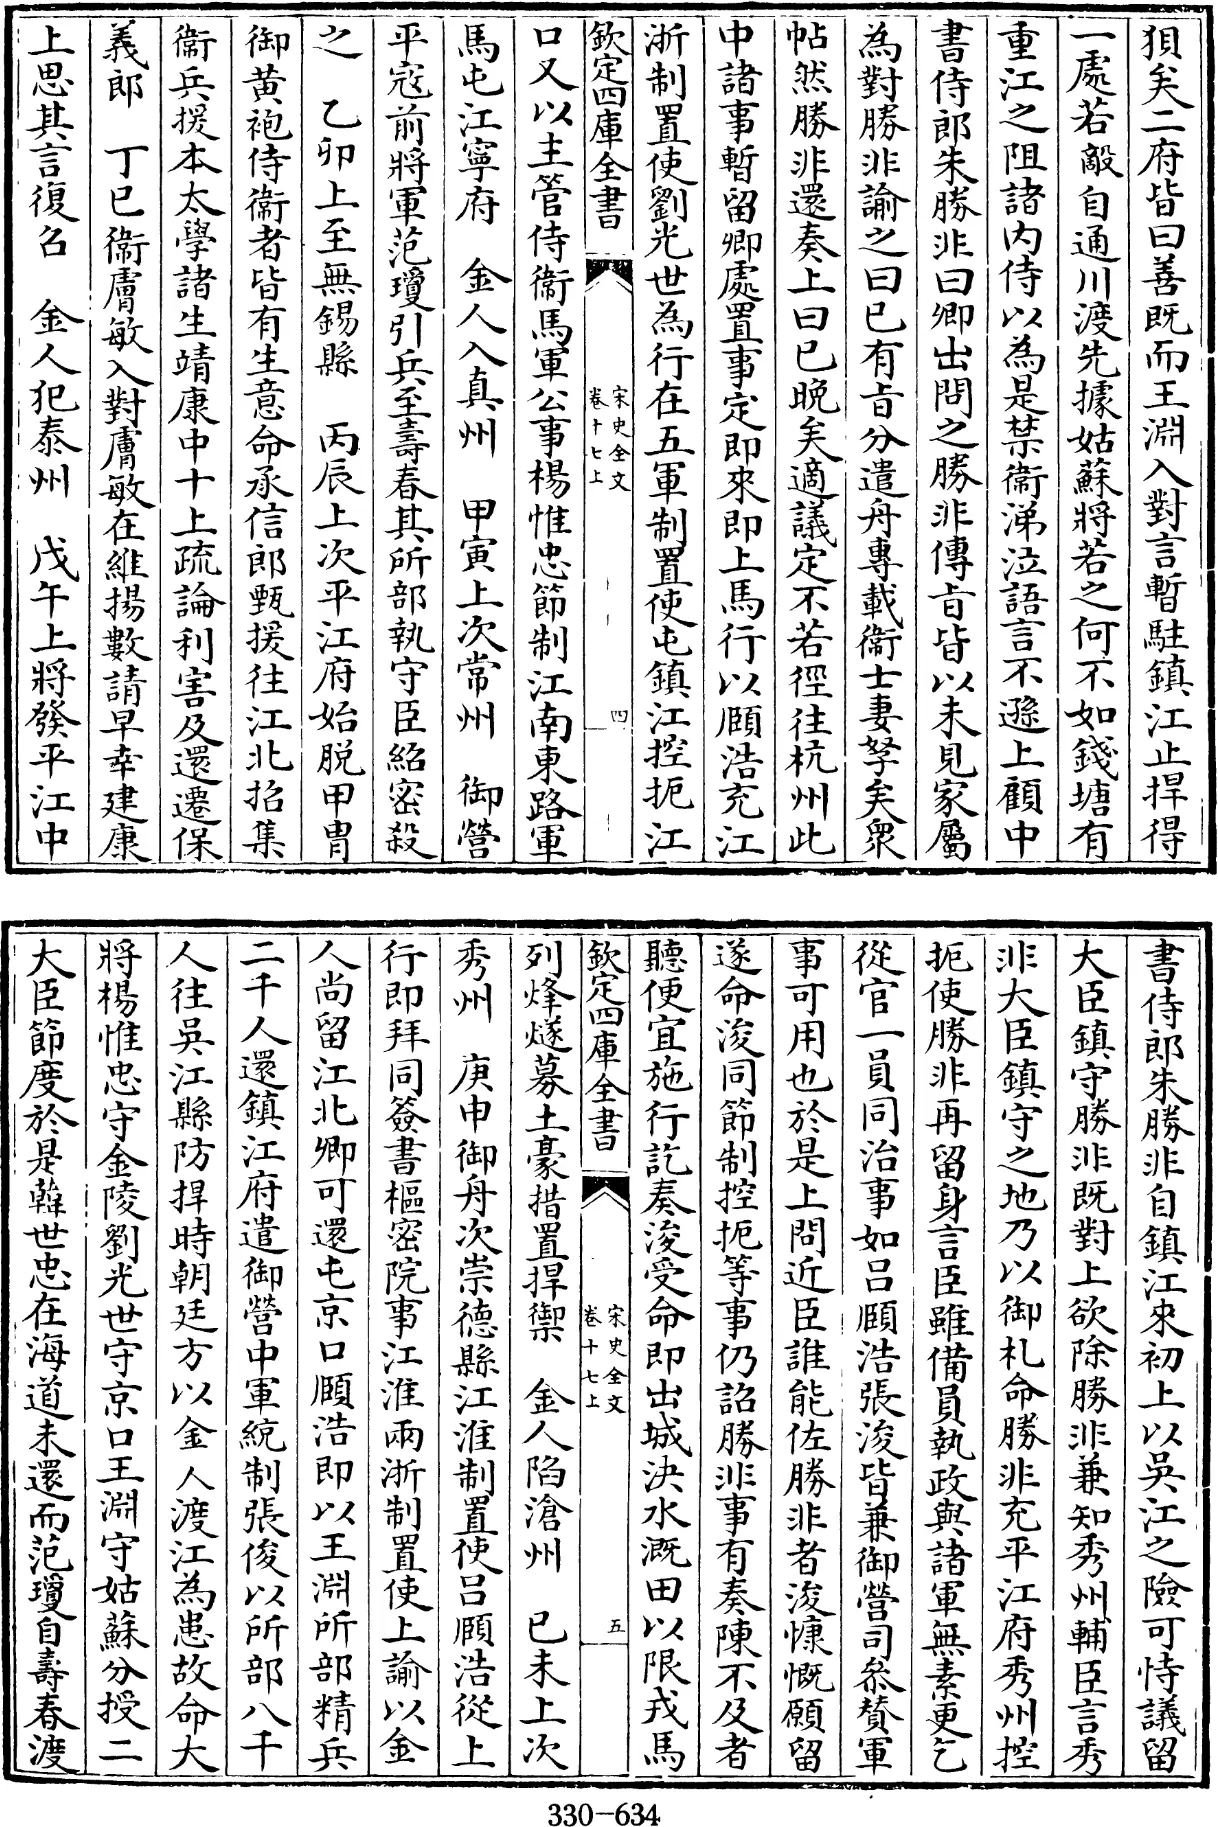 狽矣二府皆曰善既而王淵入對言暫駐鎮江止捍得
一處若敵自通川渡先據姑蘇將若之何不如錢塘有
重江之阻諸内侍以為是禁衞涕泣語言不遜上顧中
書侍郎朱勝非曰卿出問之勝非傳㫖皆以未見家屬
為對勝非諭之曰已有㫖分遣舟專載衞士妻孥矣衆
帖然勝非還奏上曰已晚矣適議定不若徑往杭州此
中諸事暫留卿處置事定即來即上馬行以頤浩充江
浙制置使劉光世為行在五軍制置使屯鎮江控扼江
欽定四庫全書
宋史全文
卷十七上
四
口又以主管侍衞馬軍公事楊惟忠節制江南東路軍
馬屯江寧府　金人入真州　甲寅上次常州　御營
平寇前將軍范瓊引兵至壽春其所部執守臣紹密殺
之　乙卯上至無錫縣　丙辰上次平江府始脱甲冑
御黄袍侍衞者皆有生意命承信郎甄援往江北招集
衞兵援本太學諸生靖康中十上疏論利害及還遷保
義郎　丁巳衞膚敏入對膚敏在維揚數請早幸建康
上思其言復召　金人犯泰州　戊午上將發平江中
書侍郎朱勝非自鎮江來初上以吳江之險可恃議留
大臣鎮守勝非既對上欲除勝非兼知秀州輔臣言秀
非大臣鎮守之地乃以御札命勝非充平江府秀州控
扼使勝非再留身言臣雖備員執政與諸軍無素更乞
從官一員同治事如吕頤浩張浚皆兼御營司叅贊軍
事可用也於是上問近臣誰能佐勝非者浚慷慨願留
遂命浚同節制控扼等事仍詔勝非事有奏陳不及者
聽便宜施行訖奏浚受命即出城決水溉田以限戎馬
欽定四庫全書
宋史全文
卷十七上
五
列烽燧募土豪措置捍禦　金人陷滄州　已未上次
秀州　庚申御舟次崇德縣江淮制置使吕頤浩從上
行即拜同簽書樞密院事江淮兩浙制置使上諭以金
人尚留江北卿可還屯京口頤浩即以王淵所部精兵
二千人還鎮江府遣御營中軍統制張俊以所部八千
人往吳江縣防捍時朝廷方以金人渡江為患故命大
將楊惟忠守金陵劉光世守京口王淵守姑蘇分授二
大臣節度於是韓世忠在海道未還而范瓊自壽春渡
330-634